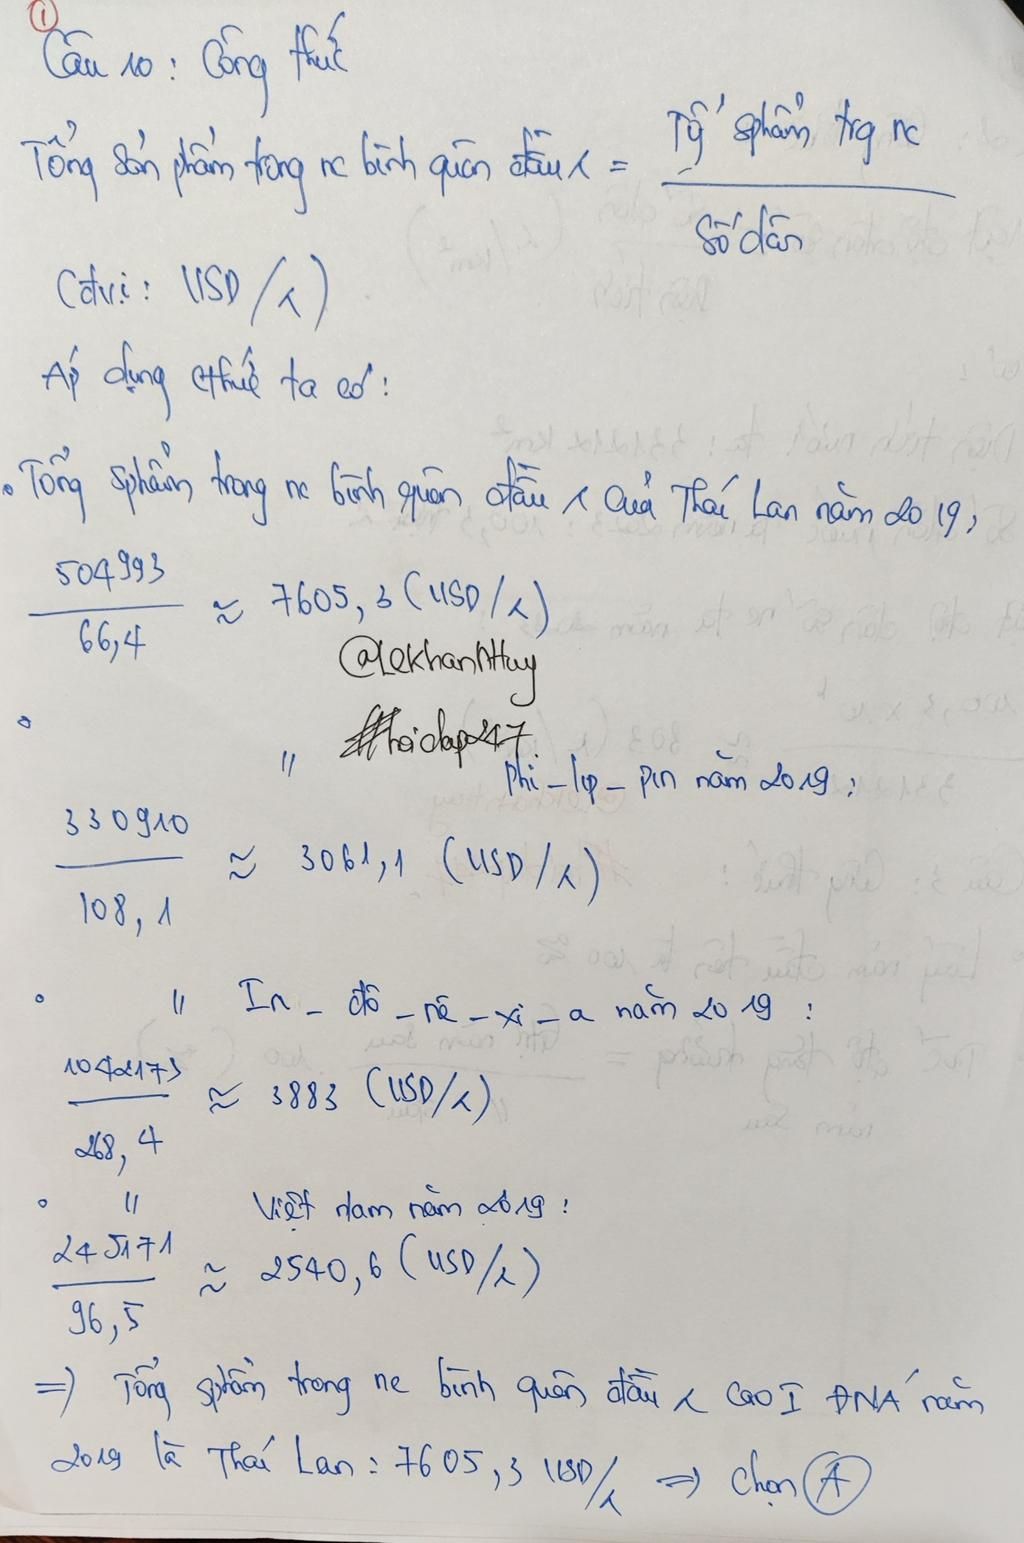 ①
Câu 10: Công thức
Tổng sản phẩm trong nc bình quân đầu x = Tg sphẩm trg nc
Số dân
(đvị: USD/x)
Áp dụng cthức ta có:
• Tổng sphẩm trong nc bình quân đầu x của Thái Lan năm 2019:
504993
66,4
≈ 7605,3 (USD/x)
@LeKhanhHuy
#hoidap247
• " Phi-lip-pin năm 2019:
330910
108,1
≈ 3061,1 (USD/x)
• " In-đô-nê-xi-a năm 2019:
1042173
268,4
≈ 3883 (USD/x)
• " Việt nam năm 2019:
245171
96,5
≈ 2540,6 (USD/x)
=> Tổng sphẩm trong nc bình quân đầu x cao I ĐNÁ năm
2019 là Thái Lan: 7605,3 USD/x => chọn A